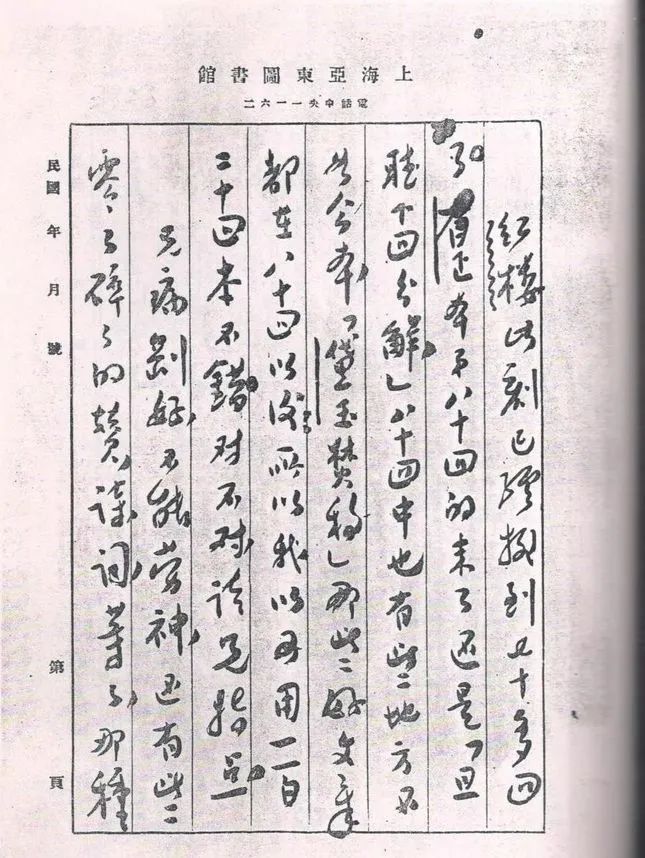 上海亞東圖書館
電話中央一一六二
紅樓此刻已經排到七十多回
了。有正本第八十回的末了还是「且
聽下回分解」八十回中也有些地方不
如今本，「黛玉焚稿」那些好文章
都在八十回以後，所以我以为用一百
二十回本不錯，对不对，請兄指示。
兄病剛好，不能勞神，还有些
零々碎々的贊，詩，詞等等，那種
民國 年 月 號 第 頁